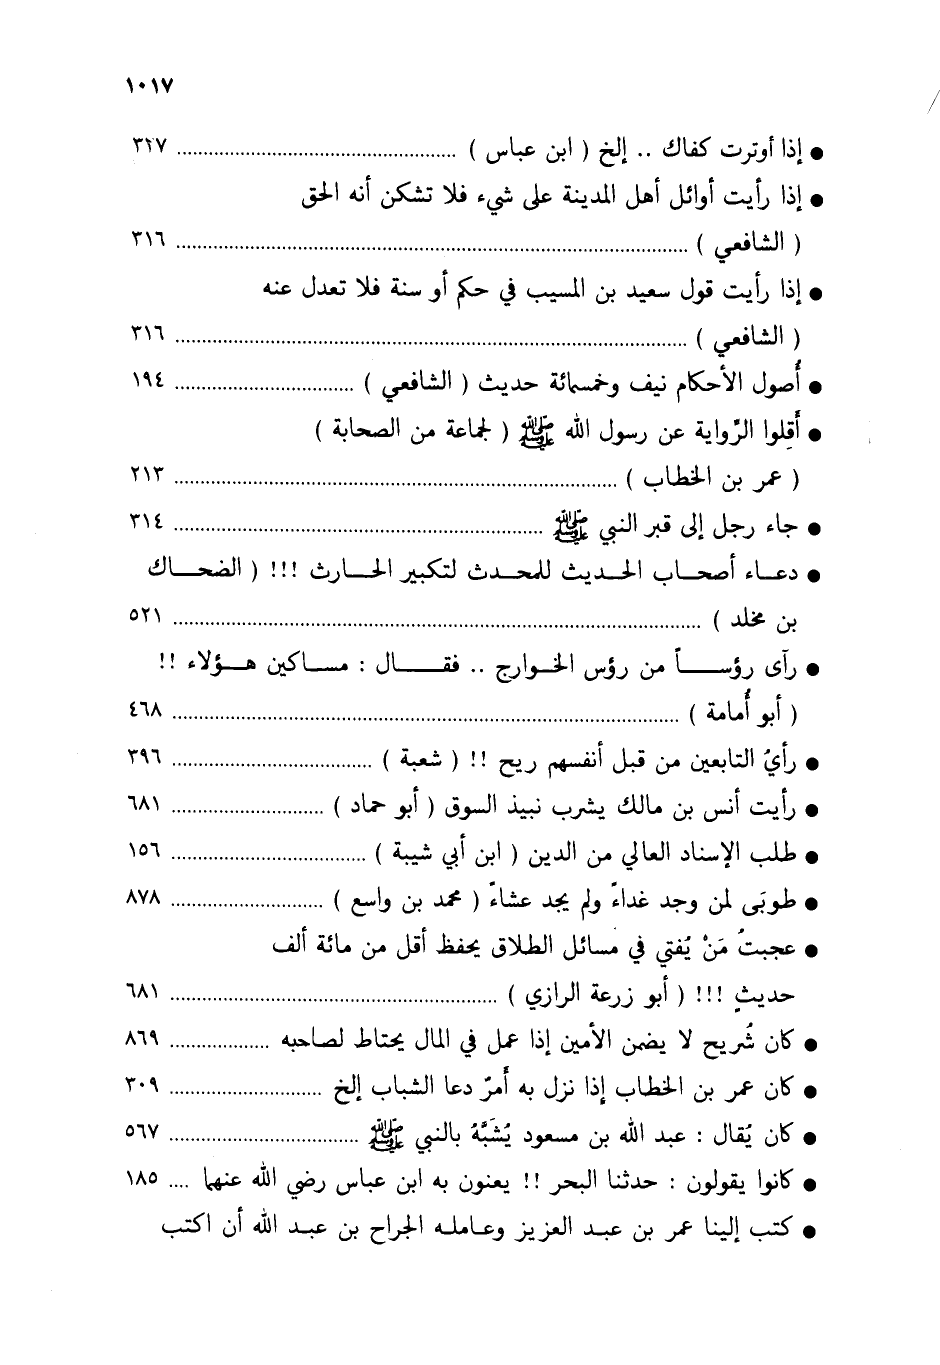 ١٠١٧
● إذا أوترت كفاك .. إلخ ( ابن عباس ) ........................ ٣٢٧
● إذا رأيت أوائل أهل المدينة على شيء فلا تشكن أنه الحق
( الشافعي ) ........................ ٣١٦
● إذا رأيت قول سعيد بن المسيب في حكم أو سنة فلا تعدل عنه
( الشافعي ) ........................ ٣١٦
● أُصول الأحكام نيف وخمسمائة حديث ( الشافعي ) ........................ ١٩٤
● أَقِلوا الرِّواية عن رسول الله ﷺ ( لجماعة من الصحابة )
( عمر بن الخطاب ) ........................ ٢١٣
● جاء رجل إلى قبر النبي ﷺ ........................ ٣١٤
● دعاء أصحاب الحديث للمحدث لتكبير الحارث !!! ( الضحاك
بن مخلد ) ........................ ٥٢١
● رآى رؤساً من رؤس الخوارج .. فقال : مساكين هؤلاء !!
( أبو أُمامة ) ........................ ٤٦٨
● رأيُ التابعين من قبل أنفسهم ريح !! ( شعبة ) ........................ ٣٩٦
● رأيت أنس بن مالك يشرب نبيذ السوق ( أبو حماد ) ........................ ٦٨١
● طلب الإسناد العالي من الدين ( ابن أبي شيبة ) ........................ ١٥٦
● طوبَى لمن وجد غداءً ولم يجد عشاءً ( محمد بن واسع ) ........................ ٨٧٨
● عجبتُ مَنْ يُفتي في مسائل الطلاق يحفظ أقل من مائة ألف
حديثٍ !!! ( أبو زرعة الرازي ) ........................ ٦٨١
● كان شُريح لا يضمن الأمين إذا عمل في المال يحتاط لصاحبه ........................ ٨٦٩
● كان عمر بن الخطاب إذا نزل به أَمرٌ دعا الشباب إلخ ........................ ٣٠٩
● كان يُقال : عبد الله بن مسعود يُشَبَّهُ بالنبي ﷺ ........................ ٥٦٧
● كانوا يقولون : حدثنا البحر !! يعنون به ابن عباس رضي الله عنهما .... ١٨٥
● كتب إلينا عمر بن عبد العزيز وعامله الجراح بن عبد الله أن اكتب